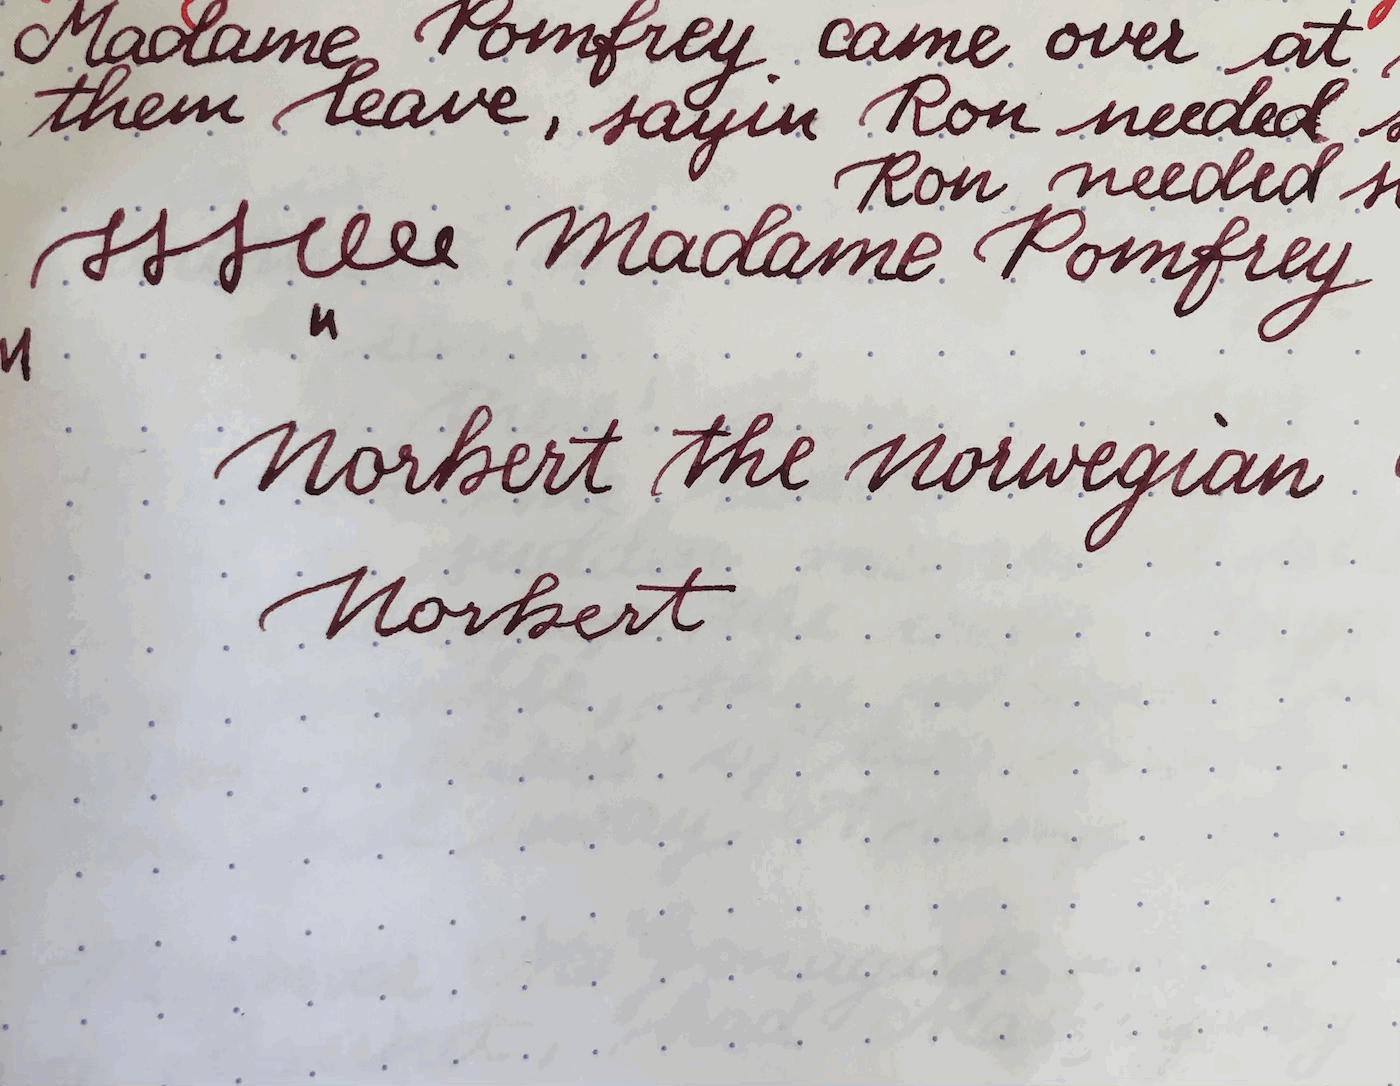 Madame Pomfrey came over at
them leave, sayin Ron needed
Ron needed
sss eee Madame Pomfrey
n
Norbert the Norwegian
Norbert